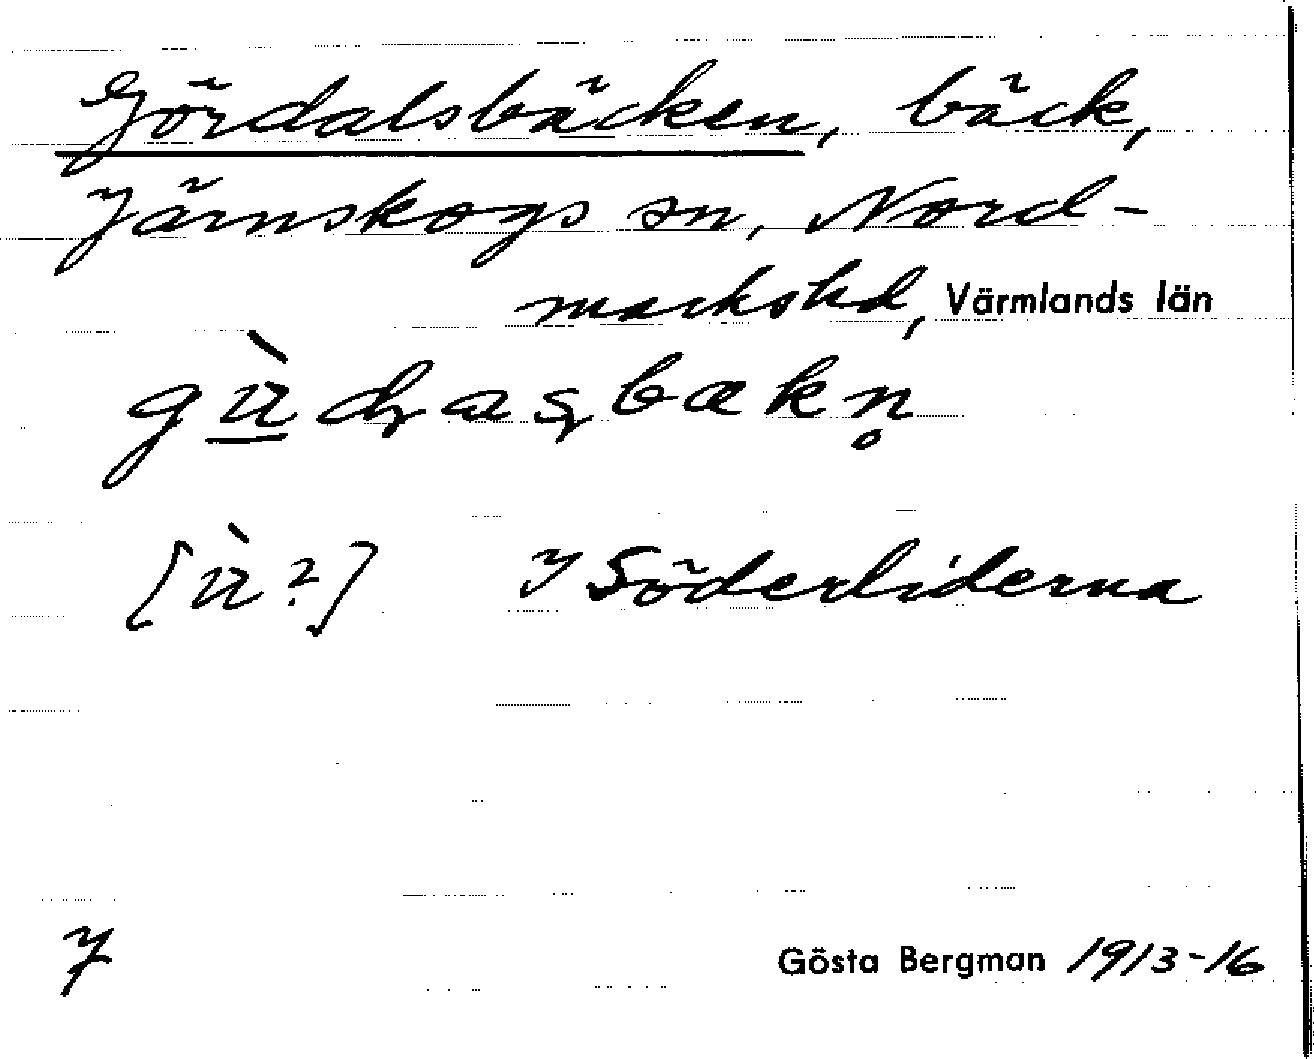 Gördalsbäcken, bäck,
Järnskogs sn, Nord-
markshd, Värmlands län
[ù?] I Söderliderna
7
Gösta Bergman 1913-16